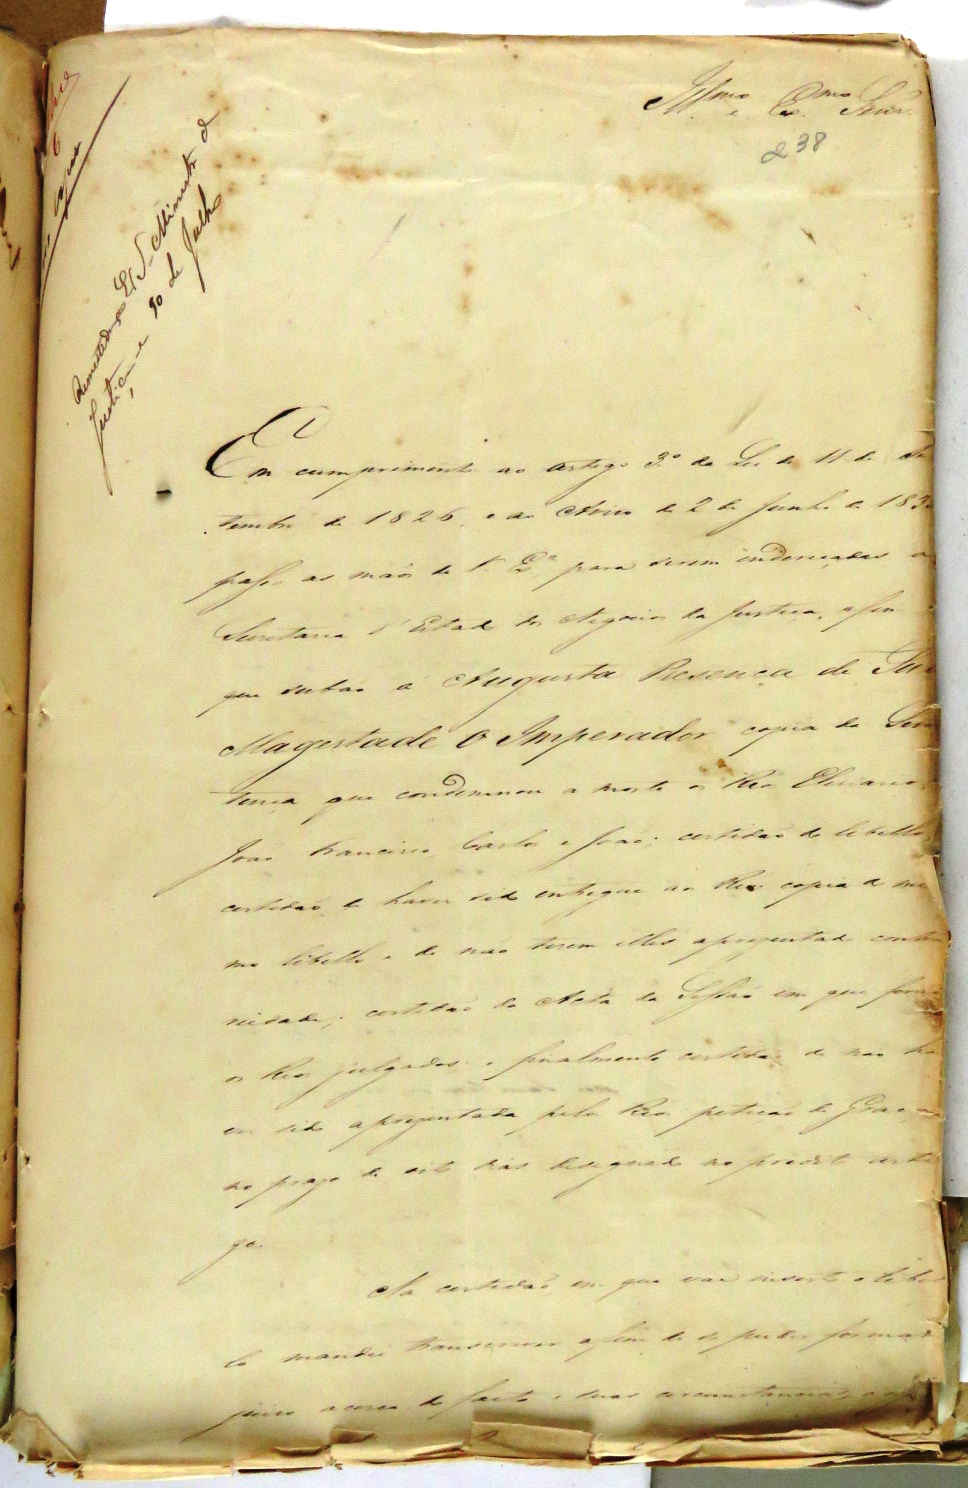 Illmo. e Exmo. Senr.
238
Remettida ao Ex S. Ministro d
Justiça e 30 de Julho
Em cumprimento ao artigo 3.º da Lei de 11 de Se
tembro de 1826, e ao Aviso de 2 de Junho de 183
passo as mãos de V. Exª, para serem indereçadas a
Secretaria d'Estado dos Negocios da Justiça, afim
que subão á Augusta Presença de Sua
Magestade O Imperador copia da Sen
tença que condemnou a morte os Réos
João Francisco, Carlos e João; certidão do libello
certidão de haver sido entregue ao Réos copia do mes
mo libello e de não terem elles apresentado contra
riedade; certidão da Acta da Sessão em que forão
os Réos julgados; e finalmente certidão de não ha
ver sido apresentada pelos Réos petição de Graça
no prazo de oito dias designado no predito arti
go.
Na certidão, em que vae inserto o libel
lo mandei transcrever afim de se puder formar
juizo acerca do facto e suas circunstancias,